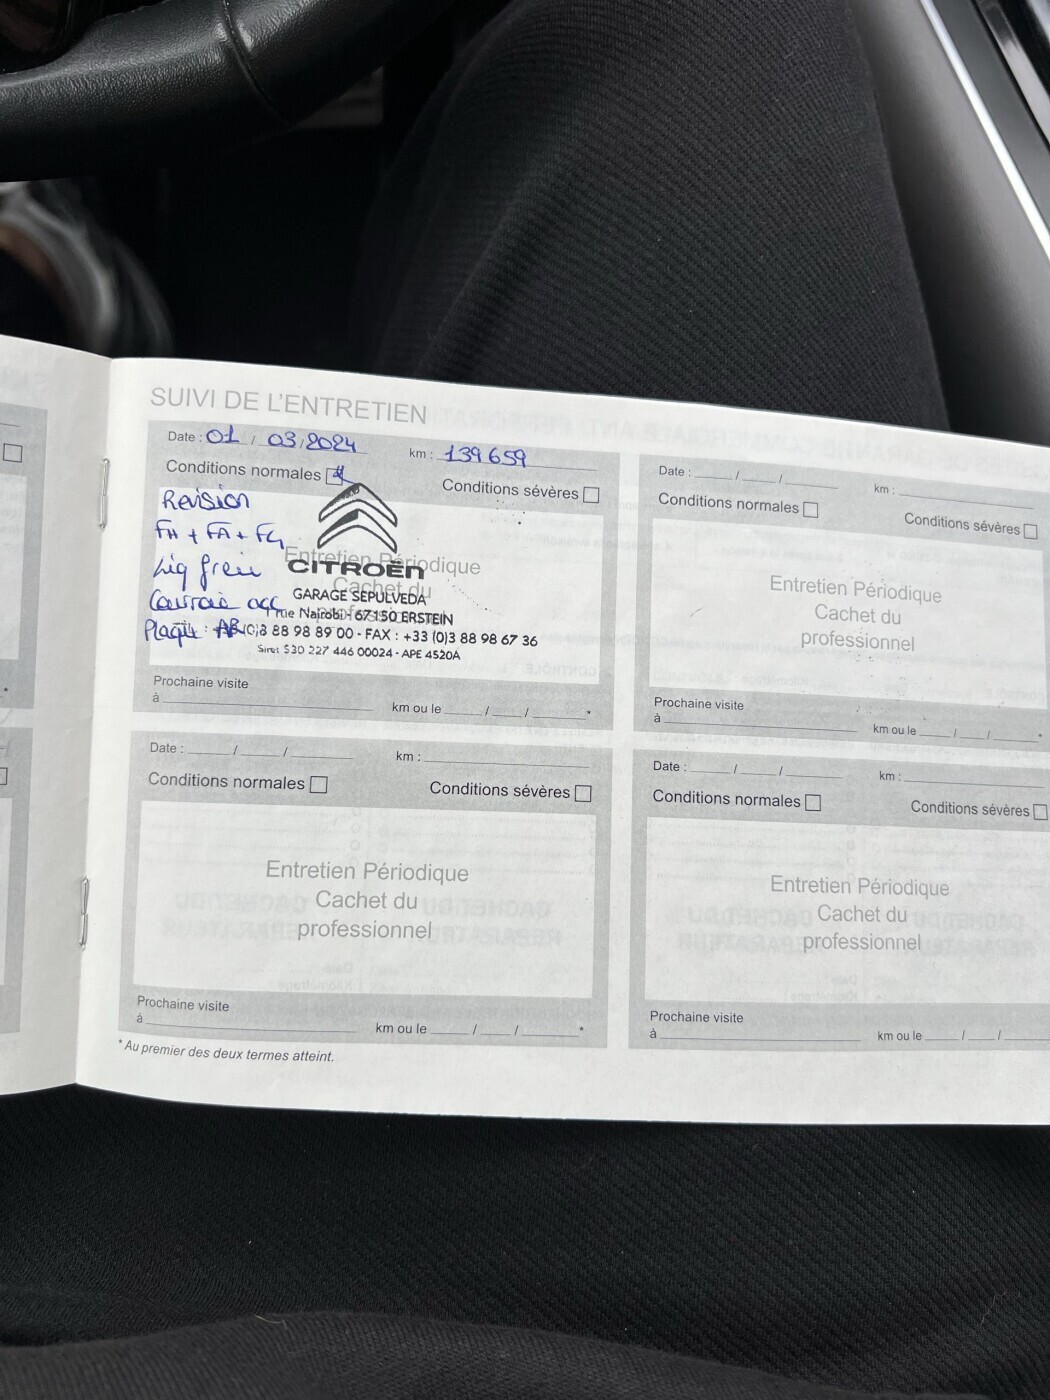 SUIVI DE L'ENTRETIEN
Date : 01 / 03 / 2024 km : 139 659
Conditions normales Conditions sévères
Révision
FH + FA + FG
Liq frein
Courroie acc
Plaqu : AR
Entretien Périodique
Cachet du
CITROËN
GARAGE SEPULVEDA
1 rue Nairobi 67150 ERSTEIN
(0)3 88 98 89 00 - FAX : +33 (0)3 88 98 67 36
Siret 530 227 446 00024 - APE 4520A
Prochaine visite
à km ou le / / *
Date : / / km :
Conditions normales Conditions sévères
Entretien Périodique
Cachet du
professionnel
Prochaine visite
à km ou le / / *
Date : / / km :
Conditions normales Conditions sévères
Entretien Périodique
Cachet du
professionnel
Prochaine visite
à km ou le / / *
Date : / / km :
Conditions normales Conditions sévères
Entretien Périodique
Cachet du
professionnel
Prochaine visite
à km ou le / /
* Au premier des deux termes atteint.